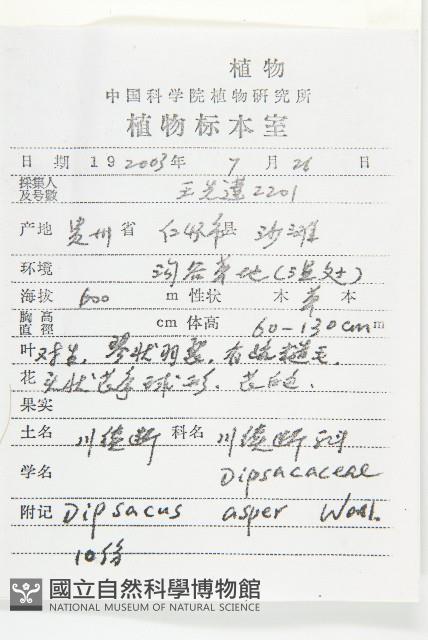 植物
中国科学院植物研究所
植物标本室
日 期 19 2003年 7 月 26 日
採集人及号数 王先達2201
产地 贵州 省 仁怀市县 沙滩
环境 沟谷草地
海拔 600 m 性状 木 草 本
胸高直徑 cm 体高 60-130cm m
叶 对生，琴状羽裂，有疏糙毛.
花 头状花序球形，花白色.
果实
土名 川续断 科名 川续断科
学名 Dipsacaceae
附记 Dipsacus asper Wall.
10份
國立自然科學博物館
NATIONAL MUSEUM OF NATURAL SCIENCE